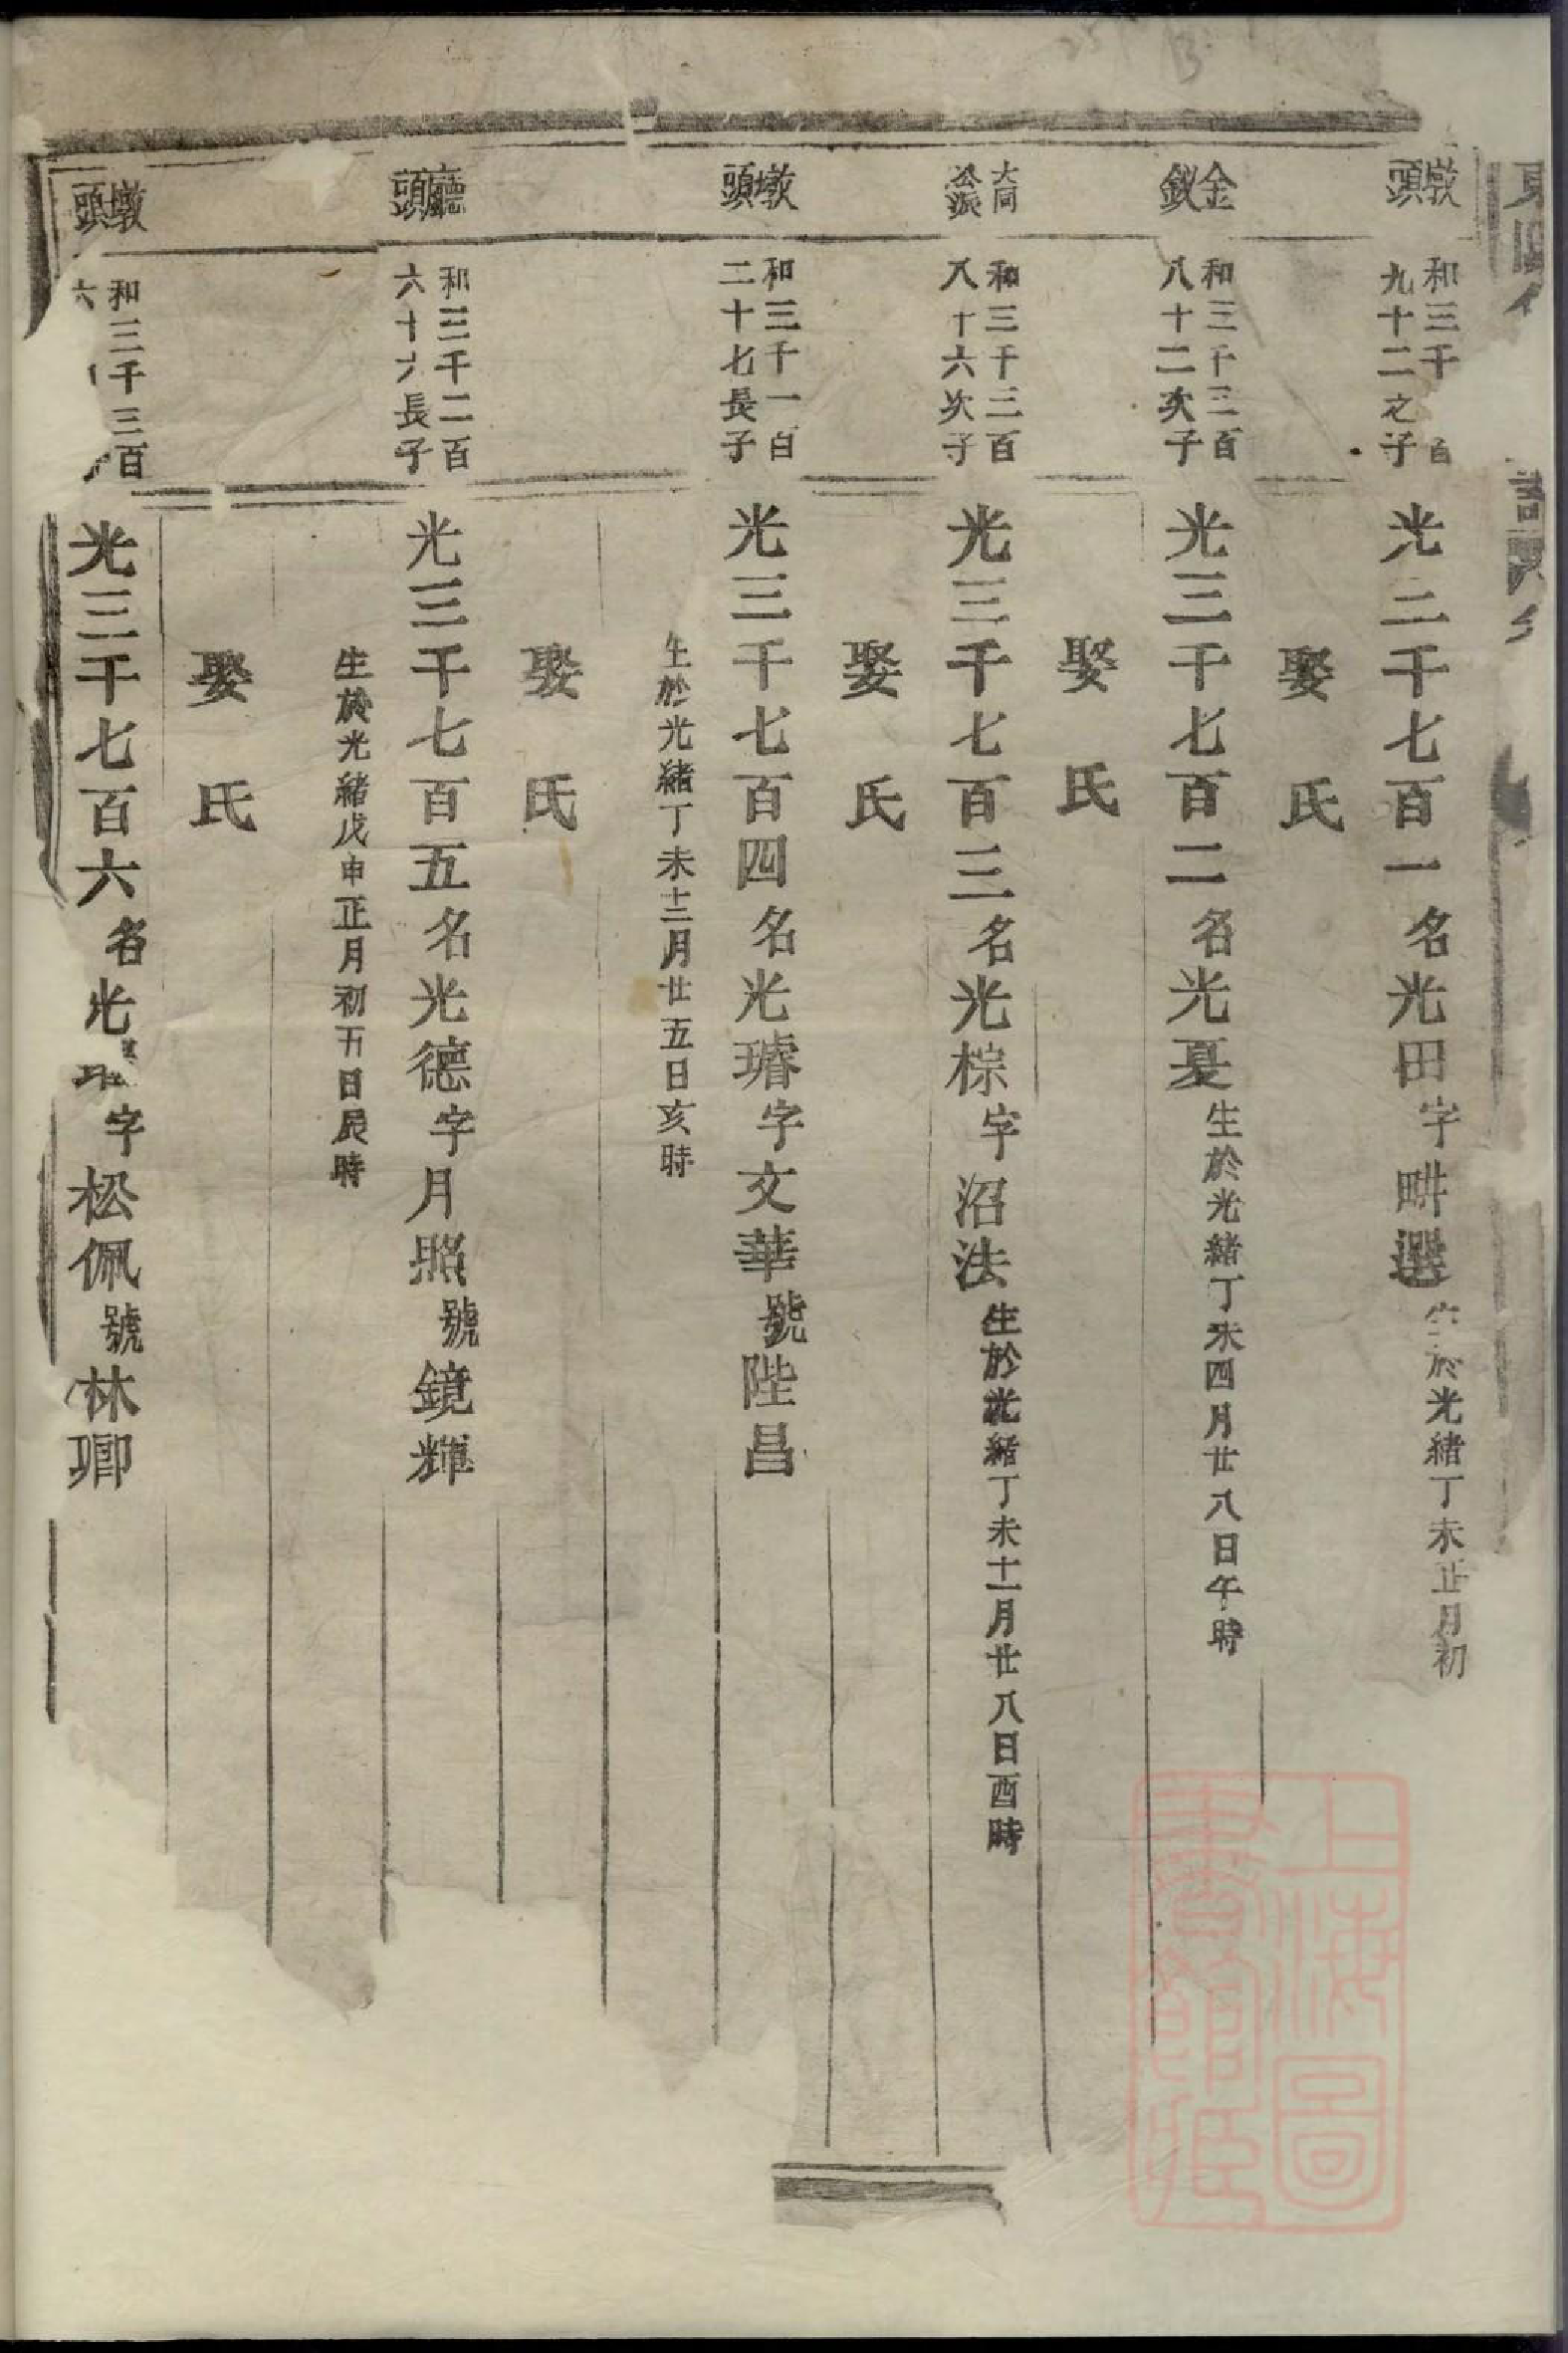 墩頭
和三千百
九十二之子
光三千七百一名光田字畊選生於光緒丁未正月初
娶氏
金釵
和三千三百
八十二次子
光三千七百二名光戛生於光緒丁未四月廿八日午時
娶氏
大同公派
和三千三百
八十六次子
光三千七百三名光棕字沼法生於光緒丁未十一月廿八日酉時
娶氏
墩頭
和三千一百
二十七長子
光三千七百四名光璿字文華號陛昌
生於光緒丁未十二月廿五日亥時
娶氏
廳頭
和三千二百
六十六長子
光三千七百五名光德字月照號鏡輝
生於光緒戊申正月初五日辰時
娶氏
墩頭
和三千三百
六
光三千七百六名光字松佩號林卿
上海圖書館藏